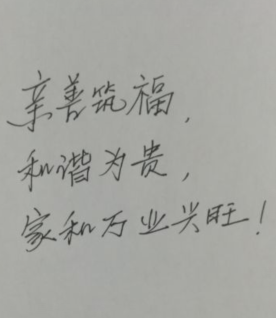 亲善筑福，
和谐为贵，
家和万业兴旺！